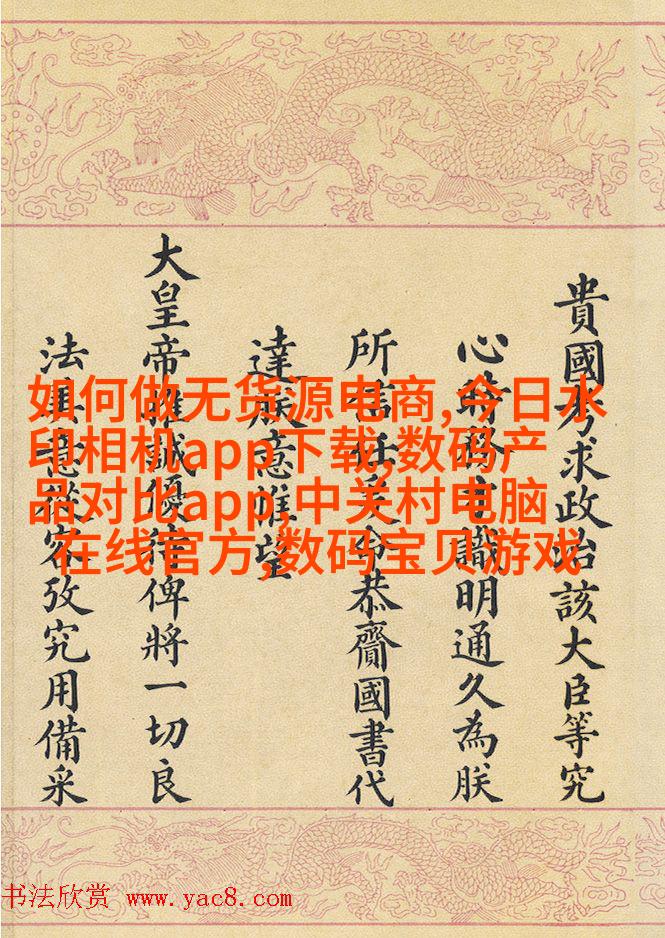 貴國考求政治該大臣等究
心時務識明通久為朕
所信任命恭齎國書代
達朕意惟望
大皇帝推誠優待俾將一切良
法意從容攷究用備采
如何做无货源电商,今日水
印相机app下载,数码产
品对比app,中关村电脑
在线官方,数码宝贝游戏
书法欣赏 www.yac8.com